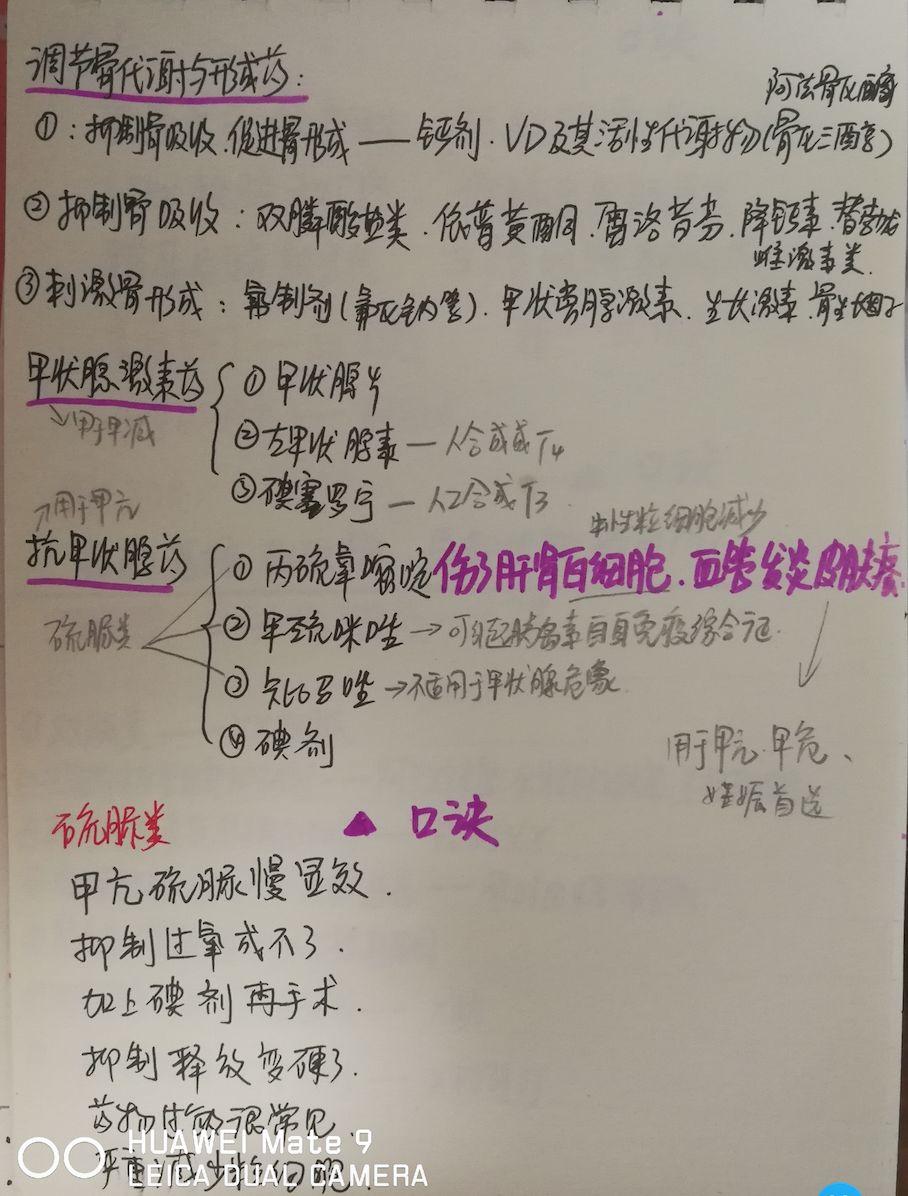 调节骨代谢与形成药：
阿法骨化醇
①：抑制骨吸收.促进骨形成——钙剂.VD及其活性代谢物(骨化三醇)
②抑制骨吸收：双膦酸盐类.依普黄酮.雷洛昔芬.降钙素.替勃龙
雌激素类.
③刺激骨形成：氟制剂(氟化钠等).甲状旁腺激素.生长激素.骨生长因子
甲状腺激素药
①甲状腺片
↘用于甲减
②左甲状腺素—人合成T4
③碘塞罗宁—人工合成T3
↗用于甲亢
中性粒细胞减少
抗甲状腺药
①丙硫氧嘧啶 伤了肝肾白细胞.血管发炎皮肤痒
硫脲类
②甲巯咪唑→可引起胰岛素自身免疫综合征
③卡比马唑→不适用于甲状腺危象
④碘剂
用于甲亢.甲危、
妊娠首选
硫脲类 ▲ 口诀
甲亢硫脲慢显效.
抑制过氧成不了.
加上碘剂再手术.
抑制释放变硬了.
药物过敏很常见.
严重减少粒细胞
HUAWEI Mate 9
LEICA DUAL CAMERA